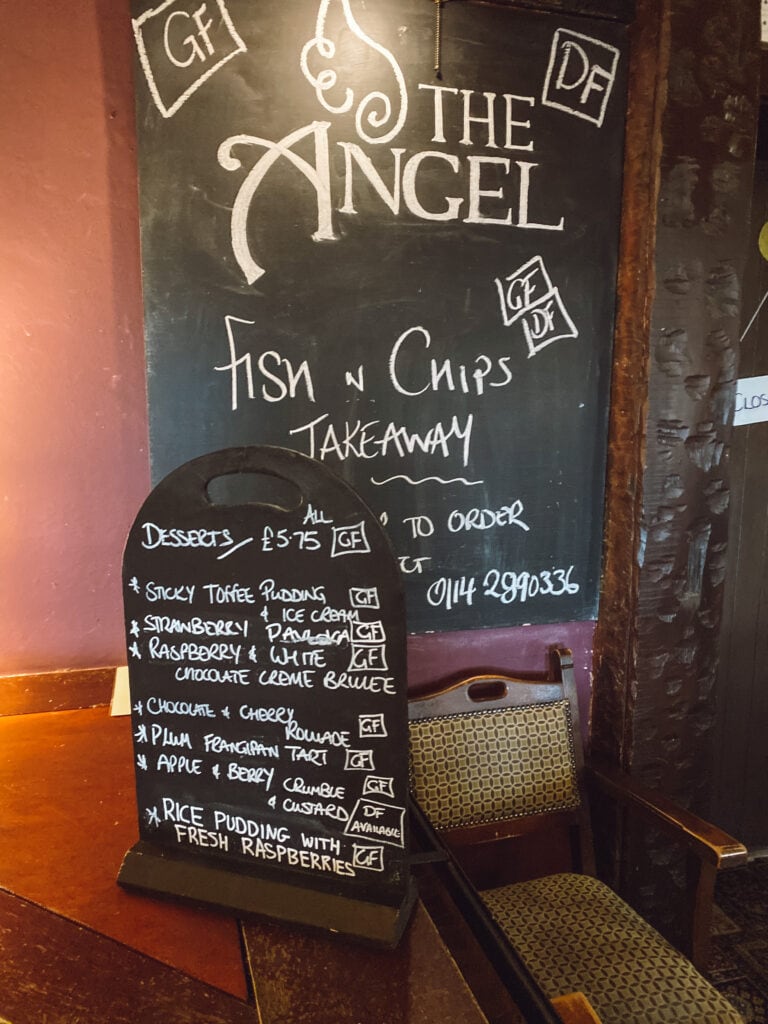 GF
DF
THE
ANGEL
GF
DF
FISH N CHIPS
TAKEAWAY
TO ORDER
0114 2890336
CLOS
ALL
DESSERTS / £5.75 GF
* STICKY TOFFEE PUDDING GF
& ICE CREAM
* STRAWBERRY PAVLOVA GF
* RASPBERRY & WHITE GF
CHOCOLATE CREME BRULEE
* CHOCOLATE & CHERRY
ROULADE GF
* PLUM FRANGIPAN TART GF
* APPLE & BERRY CRUMBLE GF
& CUSTARD DF AVAILABLE
* RICE PUDDING WITH
FRESH RASPBERRIES GF